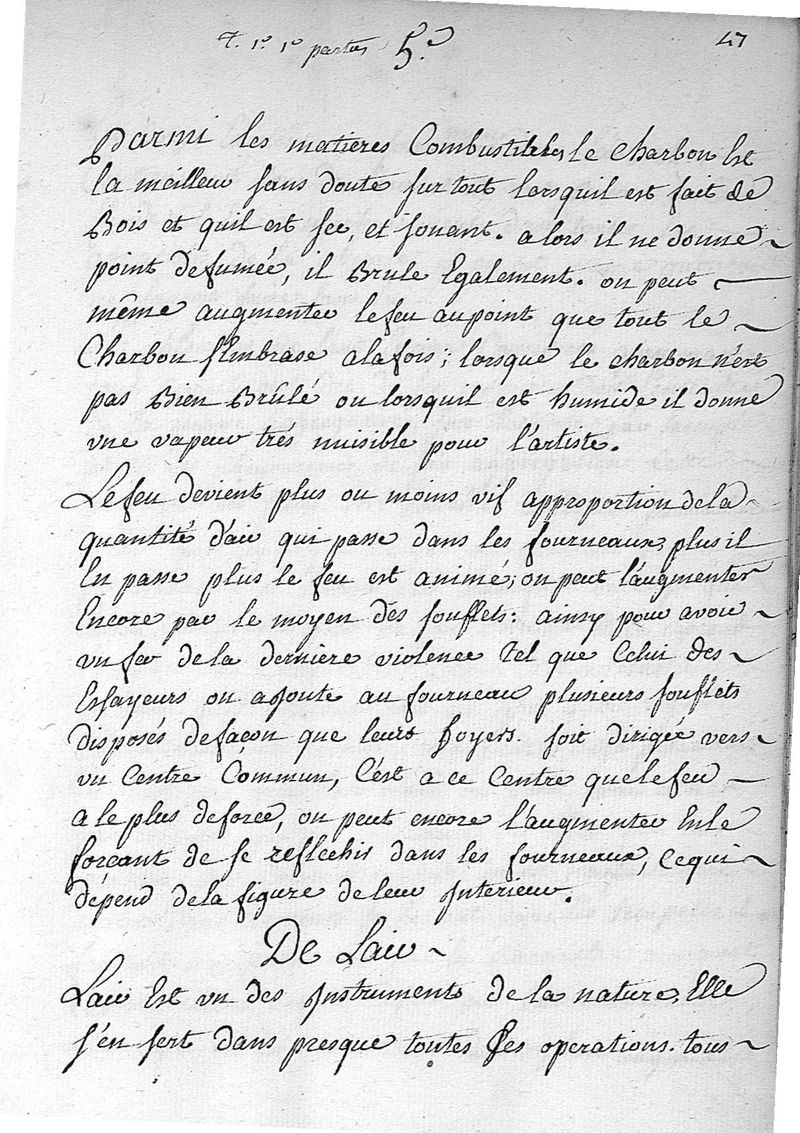 T. 1er 1e parties 5.e 47
Parmi les matières Combustibles, le charbon Est
la meilleur sans doute sur tout lorsquil est fait de
Bois et quil est sec, et sonant. alors il ne donne
point de fumée, il Brule Egalement. on peut
même augmenter le feu au point que tout le
Charbon s'Embrase a la fois; lorsque le charbon n'est
pas Bien Brulé ou lorsquil est humide il donne
vne vapeur très nuisible pour l'artiste.
Le feu devient plus ou moins vif approportion de la
quantité d'air qui passe dans les fourneaux, plus il
En passe plus le feu est animé, on peut l'augmenter
Encore par le moyen des souflets: ainsy pour avoir
vn feu de la dernière violence Tel que Celui des
Essayeurs on ajoute au fourneau plusieurs souflets
disposés de façon que leurs foyers soit dirigée vers
vn Centre Commun, C'est a ce Centre que le feu
a le plus de force, on peut encore l'augmenter En le
forcant de se reflechir dans les fourneaux, ce qui
dépend de la figure de leur Interieur.
De Lair
Lair Est vn des Instruments de la nature, Elle
s'en sert dans presque toutes Ses operations. tous